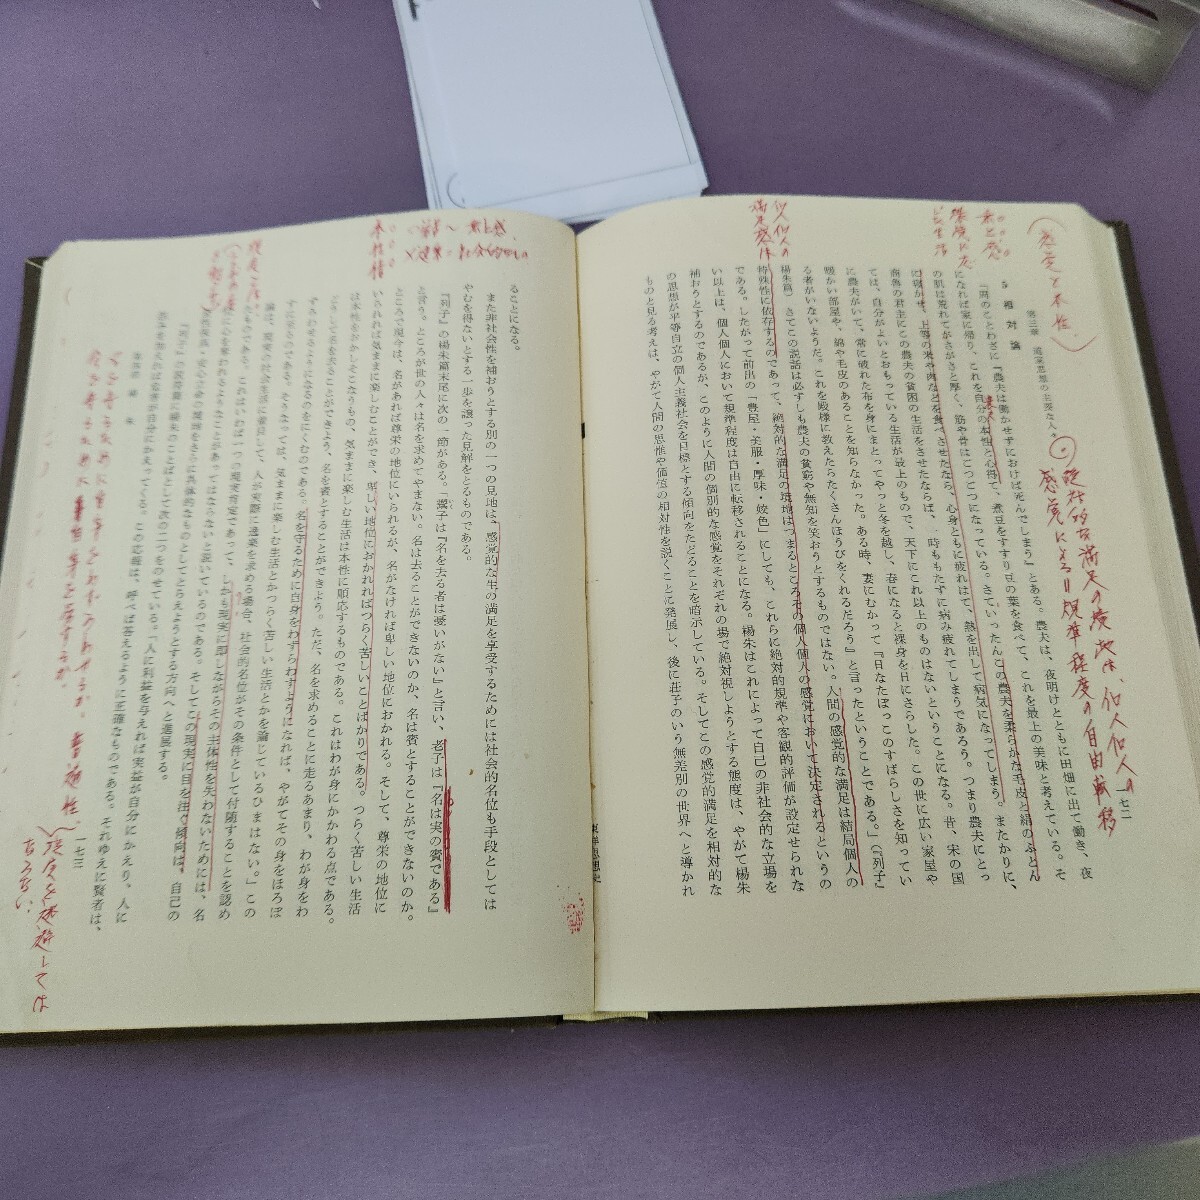 第三章 道家思想の主要な人々
一七二
5 相対論
「周のことわざに『農夫は働かせずにおけば死んでしまう』とある。農夫は、夜明けとともに田畑に出て働き、夜
になれば家に帰り、これを自分の本性と心得て、煮豆をすすり豆の葉を食べて、これを最上の美味と考えている。そ
の肌は荒れてがさがさと厚く、筋や骨はごつごつになっている。さていったんこの農夫を柔らかな毛皮と絹のふとん
に寝かせ、上等の米や肉などを食べさせたなら、心身ともに疲れはて、熱を出して病気になってしまう。またかりに、
商魯の君主にこの農夫の貧困の生活をさせたならば、一時もたたずに病み疲れてしまうであろう。つまり農夫にとっ
ては、自分がよいとおもっている生活が最上のもので、天下にこれ以上のものはないということになる。昔、宋の国
に農夫がいて、常に破れた布を身にまとってやっと冬を越し、春になると裸身を日にさらした。この世に広い家屋や
暖かい部屋や、綿や毛皮のあることを知らなかった。ある時、妻にむかって『日なたぼっこのすばらしさを知ってい
る者がいないようだ。これを殿様に教えたらたくさんほうびをくれるだろう』と言ったということである。」（『列子』
楊朱篇） さてこの説話は必ずしも農夫の貧窮や無知を笑おうとするものではない。人間の感覚的な満足は結局個人の
特殊性に依存するのであって、絶対的な満足の境地はつまるところその個人個人の感覚において決定されるというの
である。したがって前出の「豊屋・美服・厚味・姣色」にしても、これらに絶対的規準や客観的評価が設定せられな
い以上は、個人個人において規準程度は自由に転移されることになる。楊朱はこれによって自己の非社会的な立場を
補おうとするのであるが、このように人間の個別的な感覚をそれぞれの場で絶対視しようとする態度は、やがて楊朱
の思想が平等自立の個人主義社会を目標とする傾向をたどることを暗示している。そしてこの感覚的満足を相対的な
ものと見る考えは、やがて人間の思惟や価値の相対性を説くことに発展し、後に荘子のいう無差別の世界へと導かれ
ることになる。
また非社会性を補おうとする別の一つの見地は、感覚的な生の満足を享受するためには社会的名位も手段としては
やむを得ないとする一歩を譲った見解をとるものである。
『列子』の楊朱篇末尾に次の一節がある。「鬻子は『名を去る者は憂いがない』と言い、老子は『名は実の賓である』
と言う。ところが世の人々は名を求めてやまない。名は去ることができないのか、名は賓とすることができないのか。
ところで現今は、名があれば尊栄の地位にいられるが、名がなければ卑しい地位におかれる。そして、尊栄の地位に
いられれば気ままに楽しむことができ、卑しい地位におかれればつらく苦しいことばかりである。つらく苦しい生活
は本性をおかしそこなうもの、気ままに楽しむ生活は本性に順応するものである。これはわが身にかかわる点である。
どうして名を去ることができよう、名を賓とすることができよう。ただ、名を求めることに走るあまり、わが身をわ
ずらわせるようになるのをにくむのである。名を守るために自身をわずらわすようになれば、やがてその身をほろぼ
すに至るのである。そうなっては、気ままに楽しむ生活とかつらく苦しい生活とかを論じているひまはない。」この
論は、現実の社会生活に着目して、人が実際に逸楽を求める場合、社会的名位がその条件として付随することを認め
たものである。これはいわば一つの現実肯定であって、しかも現実に即しながらその主体性を失わないためには、名
に心を奪われるようなことがあってはならないと説いているのである。そしてこの現実に目を注ぐ傾向は、自己の
さらに具体的なものとしてとらえようとする方向へと進展する。
『列子』の説符篇に楊朱のことばとして次の二つをのせている。「人に利益を与えれば実益が自分にかえり、人に
怨みを加えれば危害が自分にかえってくる。この応報は、呼べば答えるように正確なものである。それゆえに賢者は、
一七三
東洋思想史